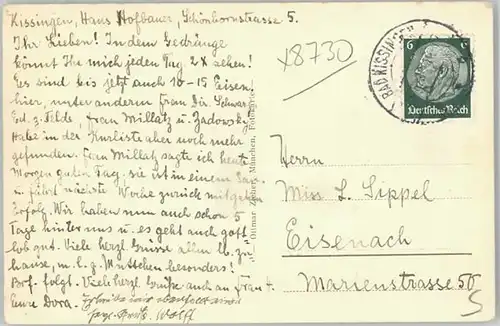 Kissingen, Haus Hofbauer, Schönbornstrasse 5.
Ihr Lieben! In dem Gedränge
könnt Ihr mich jeden Tag 2x sehen!
Es sind bis jetzt auch 10-15 Eisen.
hier, unter anderen Frau Dir. Schwarz
Ed. z. Felds, Frau Millatz u. Zadowsky
Habe in der Kurliste aber noch mehr
gefunden. Frau Millatz, sagte ich heute
Morgen guten Tag, sie ist in einem
u. fährt nächste Woche zurück mit gutem
Erfolg. Wir haben nun auch schon 5
Tage hinter uns u. es geht auch gott
lob gut. Viele herzl. Grüsse allen lb. zu
hause, m. l. g. Muttchen besonders!
Brf. folgt. Viele herzl. Grüße auch an Frau
Eure Dora.
Wolff
x8730
6
BAD KISSINGEN
Deutsches Reich
Ottmar Zieher, München.
Herrn
L. Lippel
Eisenach
Marienstrasse 50
5